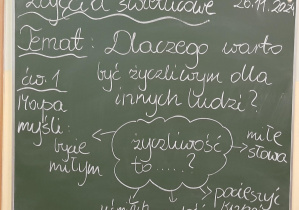 Zajęcia świetlicowe 26.11.202
Temat: Dlaczego warto
być życzliwym dla
innych ludzi?
ćw. 1
Mapa
myśli:
bycie
miłym
życzliwość
to .....?
miłe
słowa
uśmiech
pocieszyć